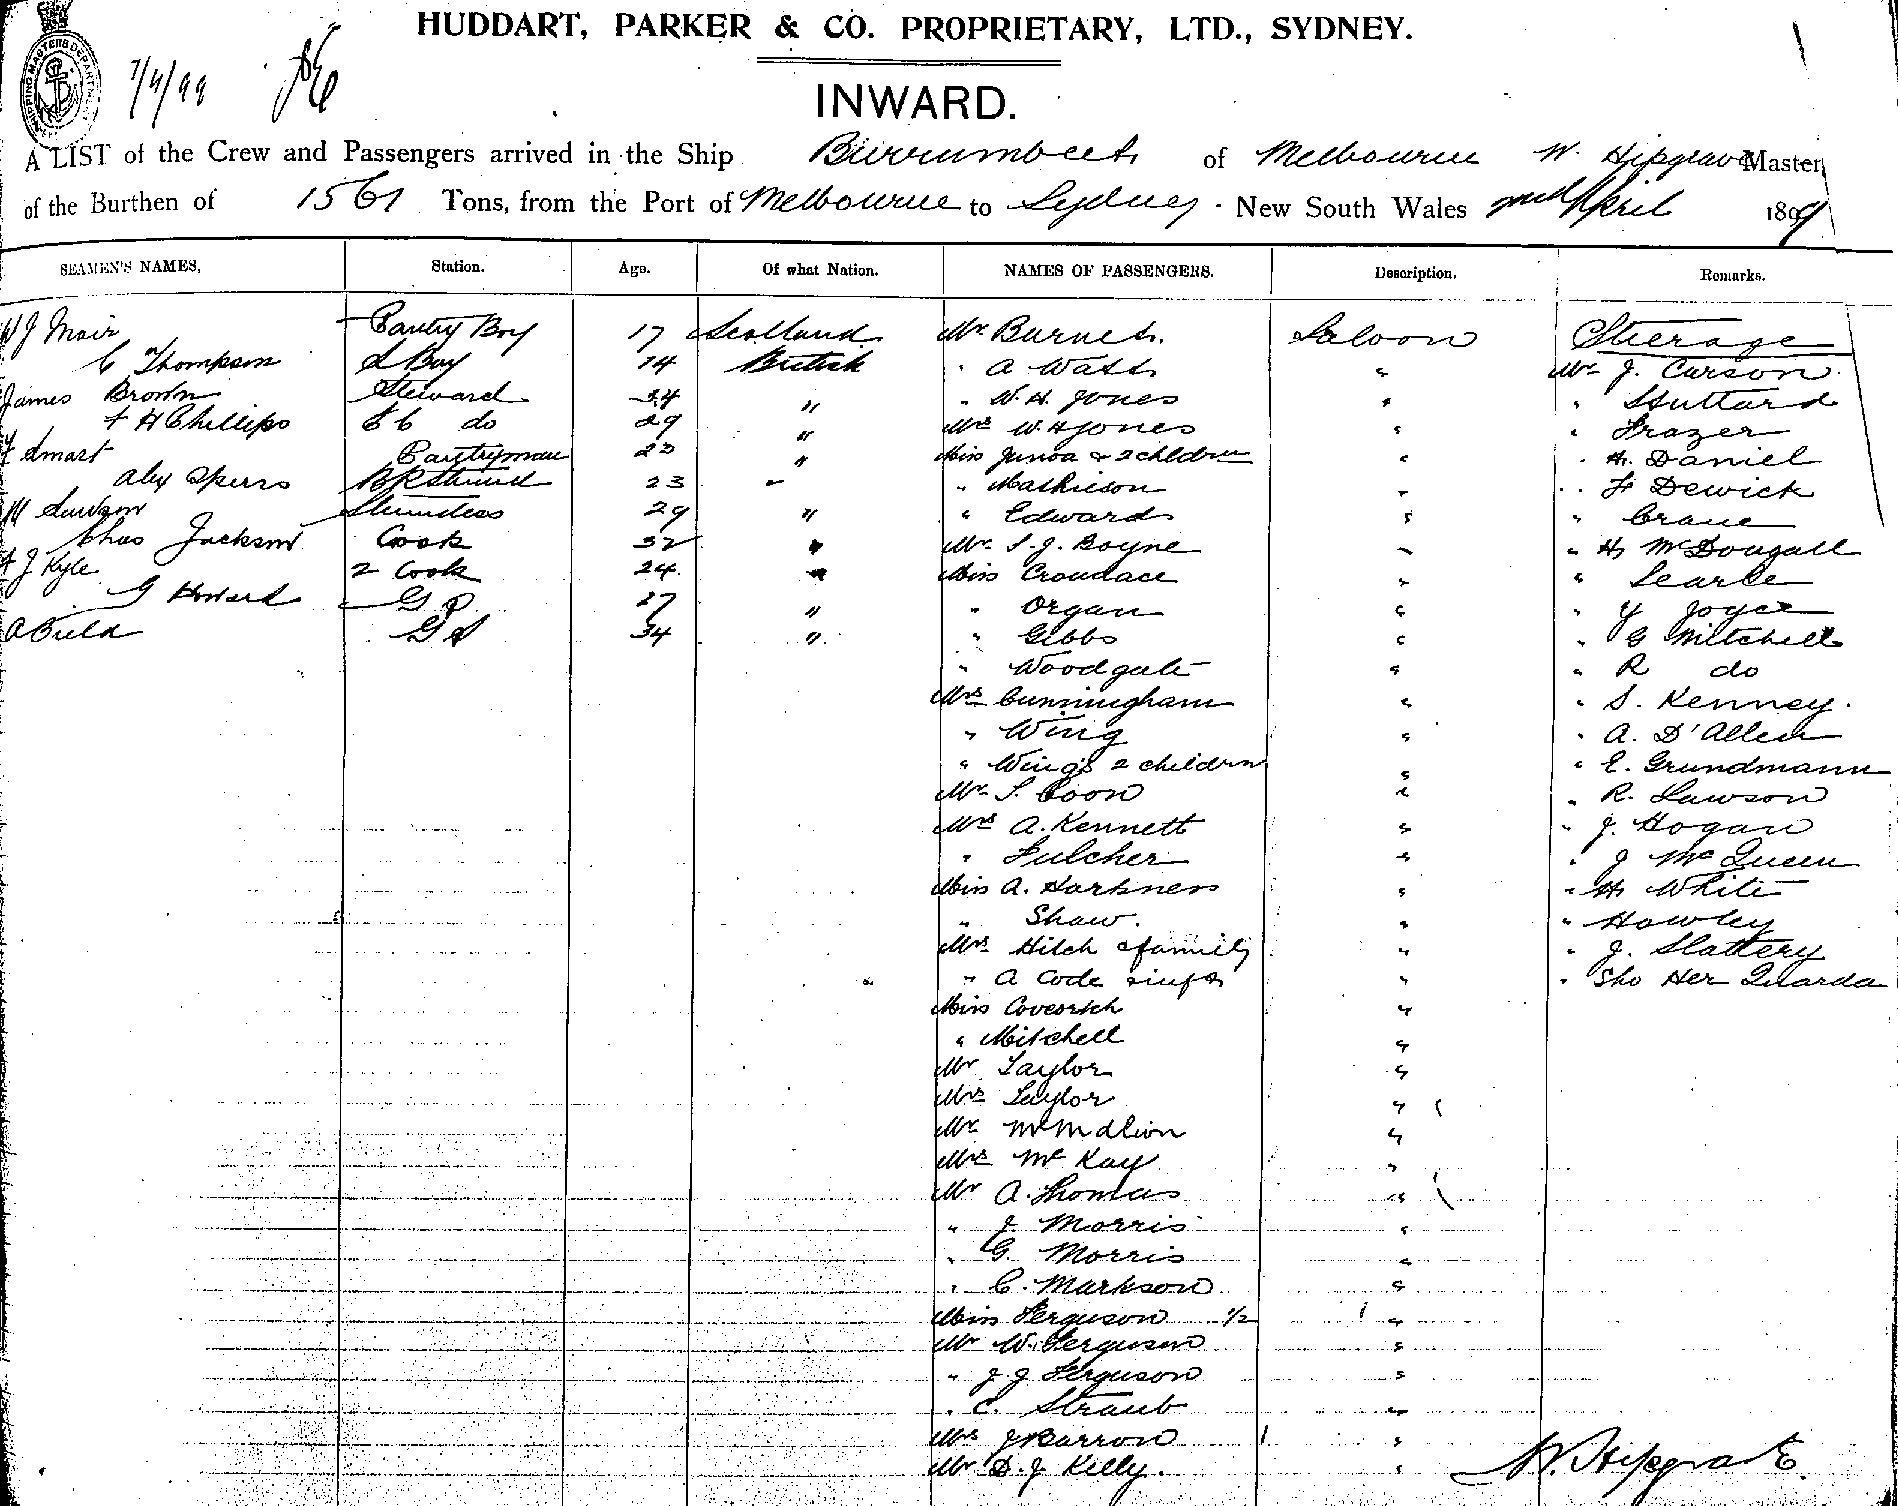 HUDDART, PARKER & CO. PROPRIETARY, LTD., SYDNEY.
7/4/99
INWARD.
A LIST of the Crew and Passengers arrived in the Ship Burrumbeet of Melbourne W. Hipgrave Master,
of the Burthen of 1561 Tons, from the Port of Melbourne to Sydney New South Wales 2nd April 1899
SEAMEN'S NAMES. Station. Age. Of what Nation. NAMES OF PASSENGERS. Description. Remarks.
W J Mair Pantry Boy 17 Scotland Mr Burnet. Saloon Steerage
C Thompson S Boy 14 British " A Watt " Mr J. Carson
James Brown Steward 34 " " W. H. Jones " " Huttard
H Phillips do 29 " Mrs W. H Jones " " Frazer
F Smart Pantryman 23 " Miss & 2 children " " H. Daniel
Alex Speirs 23 " " Mathieson " " F Dewick
M Lawson Stewardess 29 " " Edwards " " Crane
Chas Jackson Cook 32 " Mr S. J. Boyne " " H McDougall
A J Kyle 2 Cook 24 " Miss Croudace " " Searle
G Howard G P 27 " " Organ " " Y Joyce
A Field G S 34 " " Gibbs " " G Mitchell
" Woodgate " " R do
Mrs Cunningham " " S. Kenney.
" Wing " " A. D'Allen
" Wing's 2 children " " E. Grundmann
Mr S. Coon " " R. Lawson
Mrs A. Kennett " " J. Hogan
" Fulcher " " J McQueen
Miss A. Harkness " " H White
" Shaw. " " Howley
Mrs Hitch & family " " J. Slattery
" A Code " " Sho Her Quarda
Miss "
" Mitchell "
Mr Taylor "
Mrs Taylor "
Mr "
Mrs McKay "
Mr A. Thomas "
" J Morris "
" G. Morris "
" C. Markson "
Miss Ferguson 1/2 "
Mr W. Ferguson "
" J J Ferguson "
" C. Straub "
Mrs J Barron "
Mr D. J Kelly. "
W. Hipgrave.